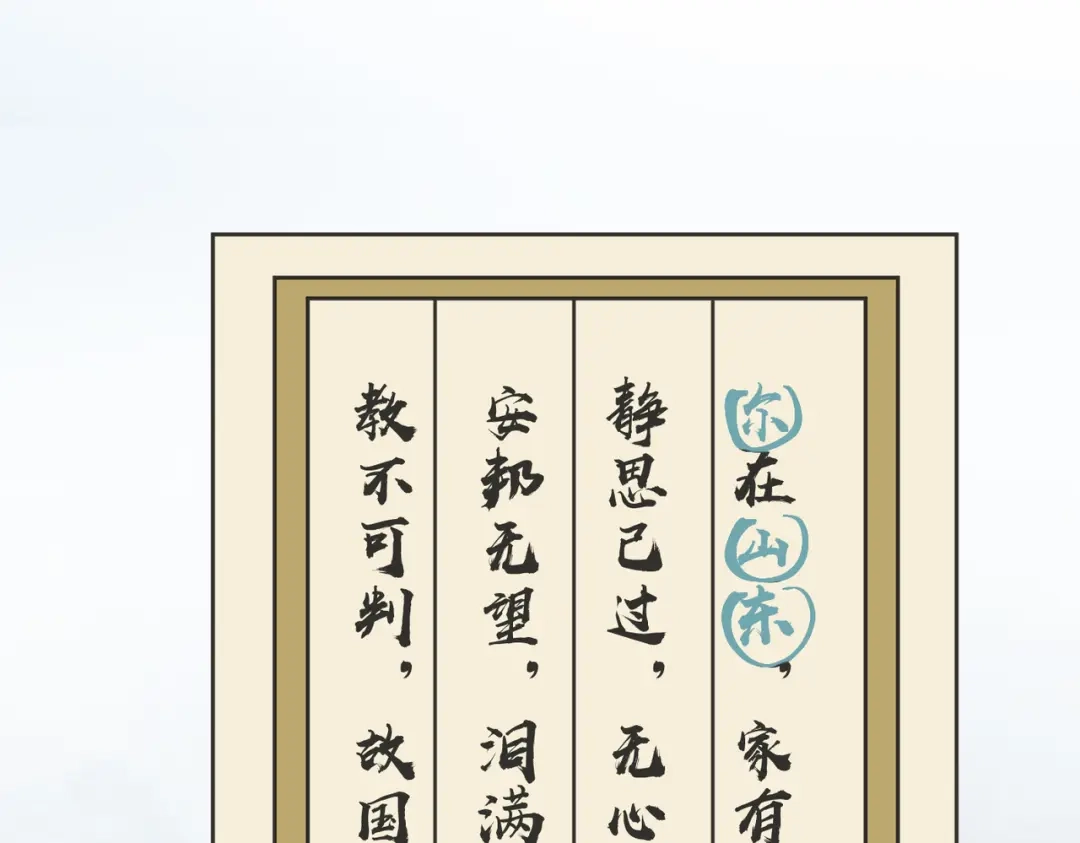 尔在山东，家有
静思已过，无心
安邦无望，泪满
教不可判，故国